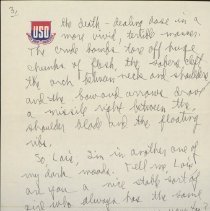 3.
USO
the death-dealing dose in a
more vivid, terrible manner.
The crude bombs tore off huge
chunks of flesh, the sabers cleft
the arch between neck and shoulders
and the bow and arrows drove
a missile right between the
shoulder blade and the floating
ribs.
So Lois, I'm in another one of
my dark moods. Tell me Lois
are you a nice staff sort of
girl who always has the same